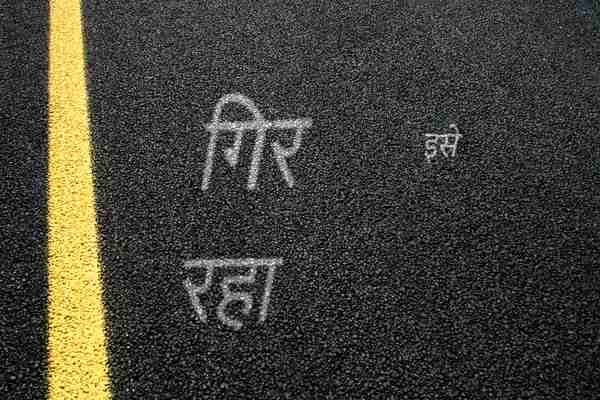 गिर इसे
रहा